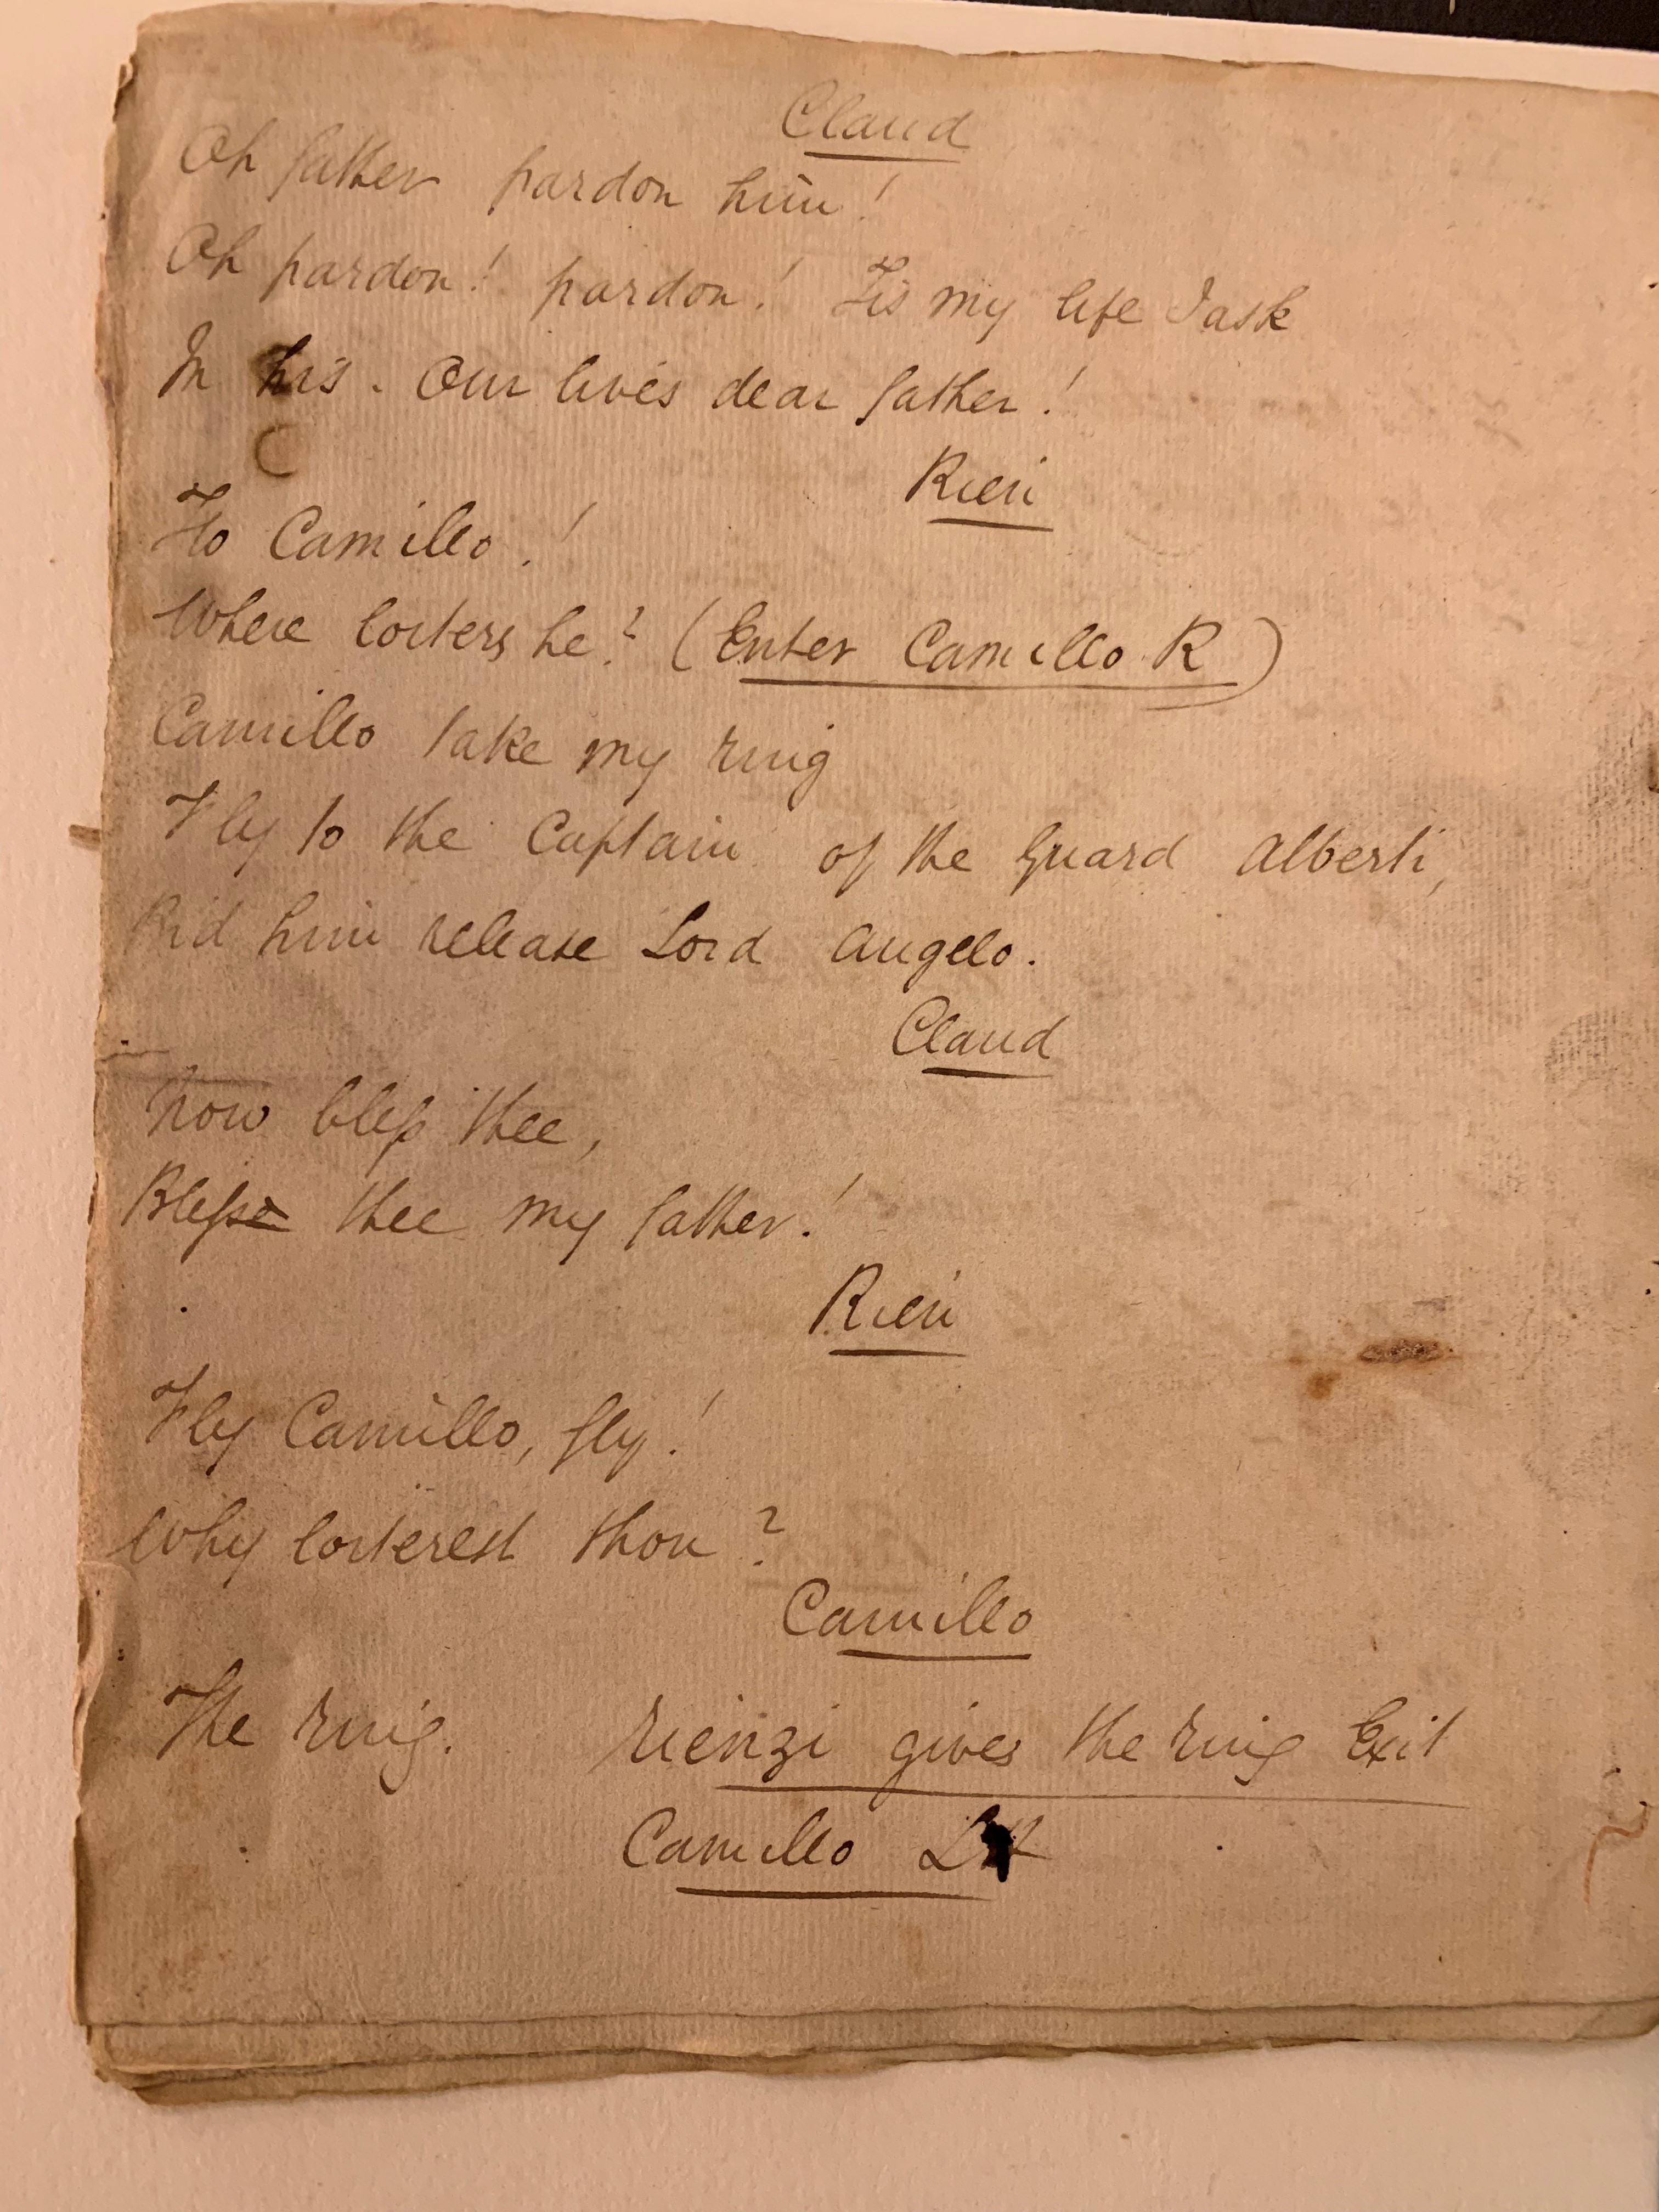 Claud
Oh father pardon him!
Oh pardon! pardon! Tis my life I ask
In his. Our lives dear father!
Rien
Ho Camillo!
Where loiters he? (Enter Camillo R)
Camillo take my ring
Fly to the Captain of the Guard Alberti,
Bid him release Lord Angelo.
Claud
Now bless thee,
Bless thee my father!
Rien
Fly Camillo, fly!
Why loiterest thou?
Camillo
The ring. Rienzi gives the ring Exit
Camillo